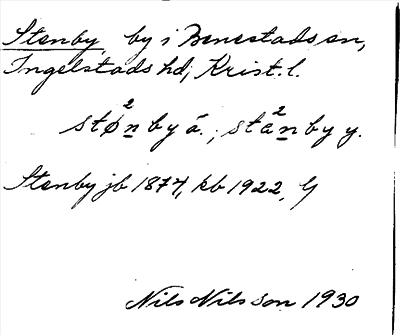 Stenby, by i Benestads sn,
Ingelstads hd, Krist. l.
stø²n by ä.; stä²n by y.
Stenby jb 1877, kb 1922, G
Nils Nilsson 1930